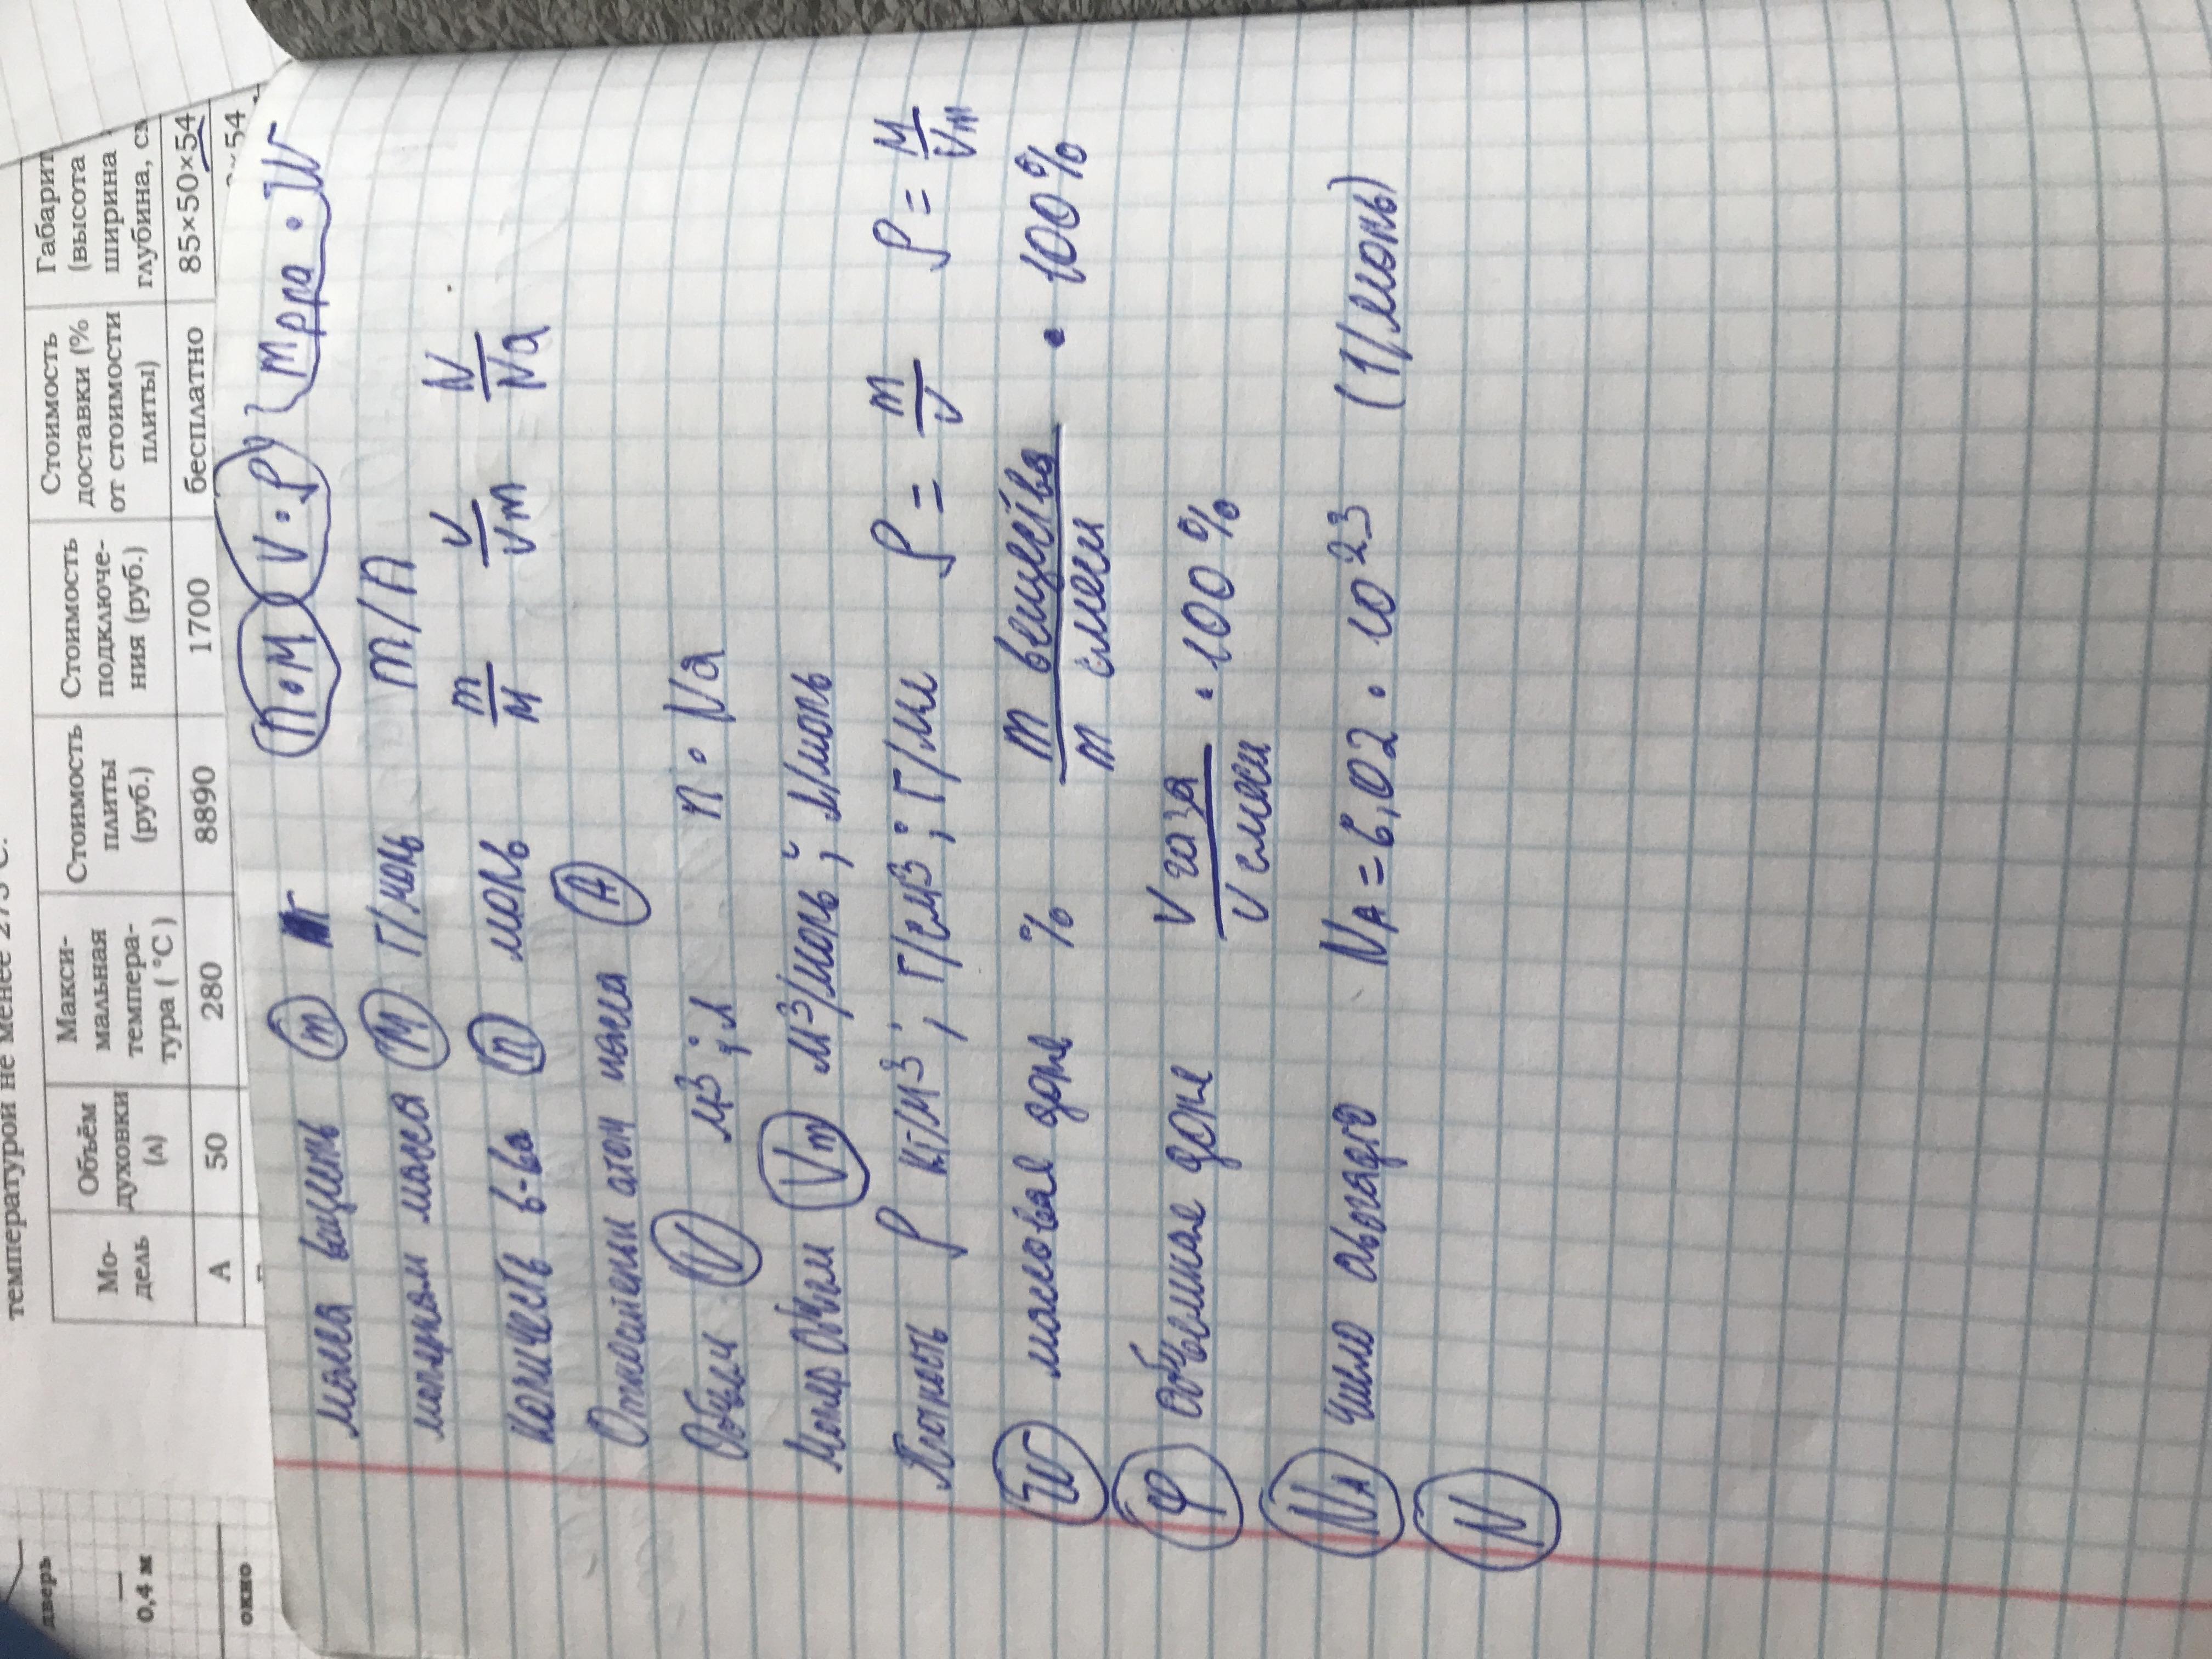 температурой не менее 275 °С.
Мо-
дель
Объём
духовки
(л)
Макси-
мальная
темпера-
тура ( °С )
Стоимость
плиты
(руб.)
Стоимость
подключе-
ния (руб.)
Стоимость
доставки (%
от стоимости
плиты)
Габарит
(высота
ширина
глубина, см
А 50 280 8890 1700 бесплатно 85×50×54
×54
дверь
0,4 м
окно
масса вещень m г n•M V•ρ m рра • W
молумом масса M г/моль m/n
количеств в-ва n моль m/M V/Vm N/Na
Относительн атом масса A
Объем V м3 ; л n • Na
Моляр Объем Vm м3/моль ; л/моль
Плотность ρ кг/м3 ; г/см3 ; г/мл ρ = m/V ρ = M/Vm
W массовая доля % m вещества/m смеси • 100%
φ объемная доля V газа/V смеси • 100%
NA Число авогадро NA = 6,02 • 10 23 (1/моль)
N